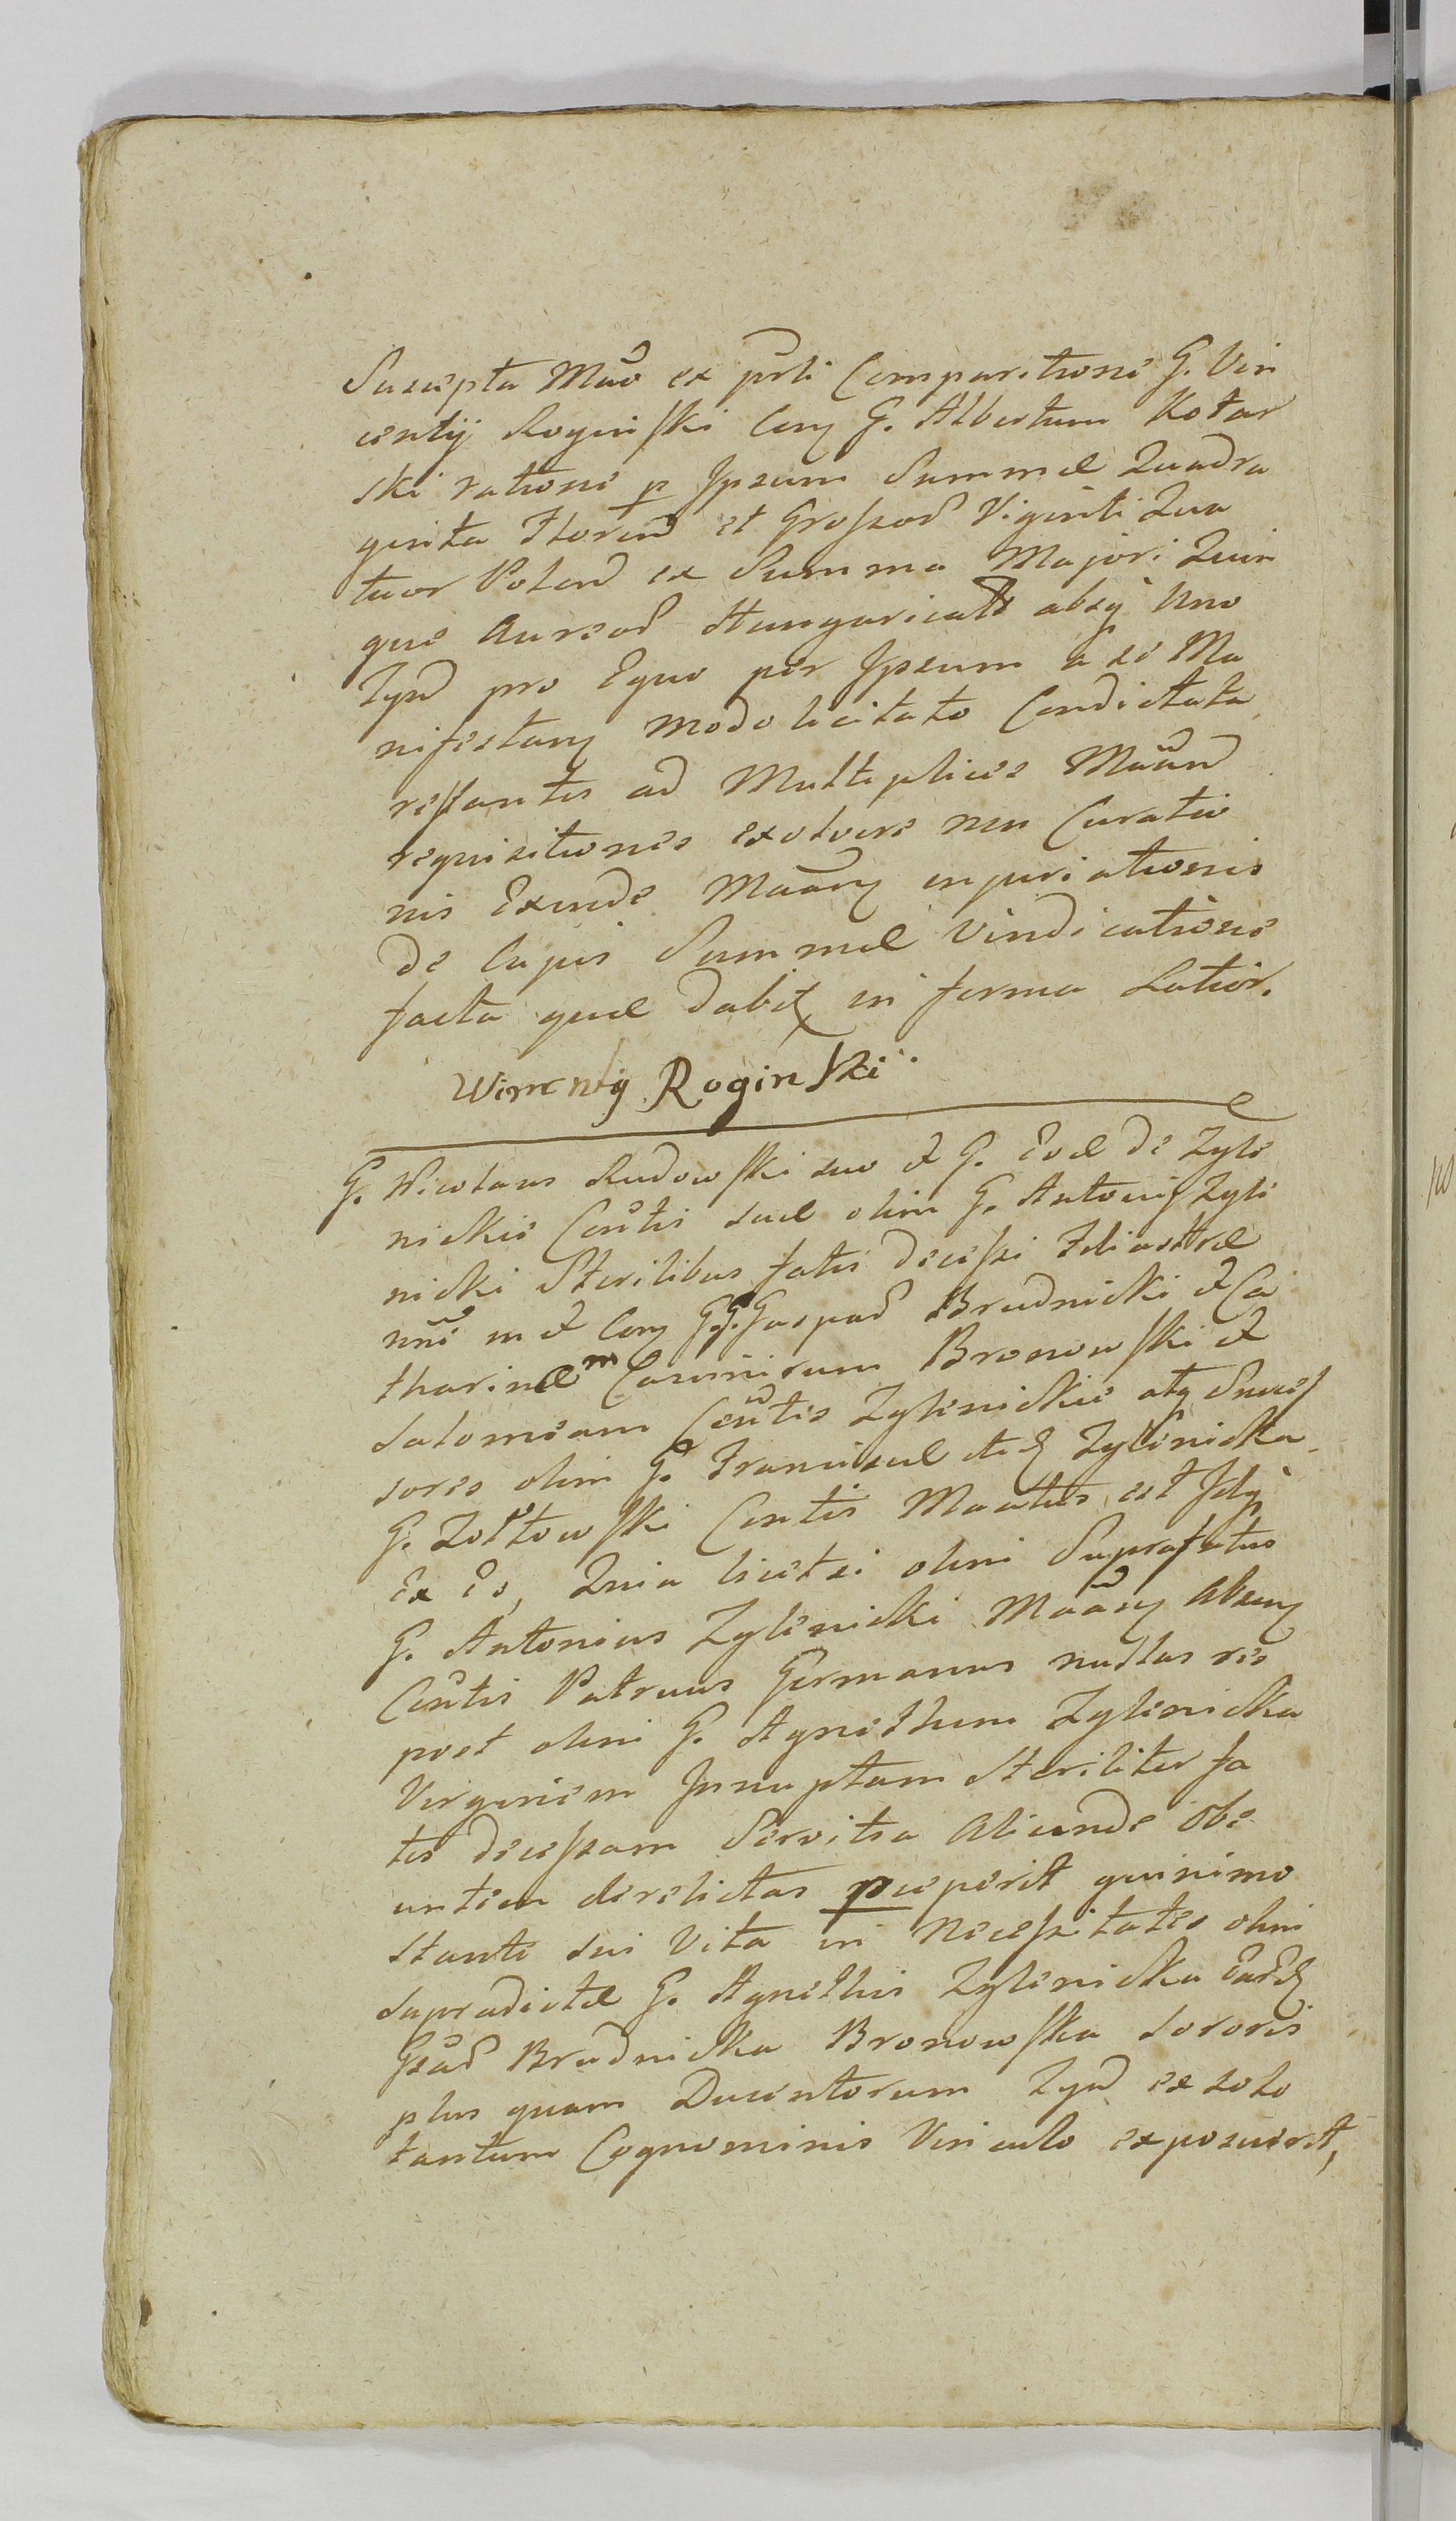 Suscepta Mãõ ex prli Comparitione G. Vin
centij Roginski Cony G. Albertum Kotar
ski ratione p Ipsum Summæ Quadra
ginta Floren et Grossor Viginti Qua
tuor Polon ex Summa Majori Quin
que Aureor Hungarical absq Uno
Tyn pro Equo per Ipsum a se Ma
nifestan modo licitato Condictata
restantis ad Multiplices Mãan
requisitiones exolvere non Curatio
nis Exinde Mãan injuriationis
de Cujus Summæ Vindicatione
facta quæ dabit in forma Latior.
Wincenty Roginski
G. Nicolaus Rudowski suo et G. Evæ de Zyle
nickie Contis suæ olim G. Antonij Zyle
nicki Sterilibus fatis decessi Filiastræ
nnẽ m et Cony G.G. Gaspar Brudnicki et Ca
tharinæm Casimirum Bronowski et
Salomeam Contis Zylenickie atq Succes
sores olim G. Franciscæ de Zylenicka
G. Zołtowski Contis Maatus est Idq
Ex Eo, Quia licet si olim Suprafatus
G. Antonius Zylenicki Mãan Absen
Contis Patruus Germanus nullas res
post olim G. Agnetham Zylenicka
Virginem Innuptam Steriliter fa
tis decessam Servitia Aliunde Obe
untem derelictas peperit quinimo
stante sui Vita in Necessitates olim
supradictæ G. Agnethis Zylenicka Ear
Gsar Brudnicka Bronowska Sororis
plus quam Ducentorum Tyn ex solo
tantum Cognominis Vinculo exposuerit,